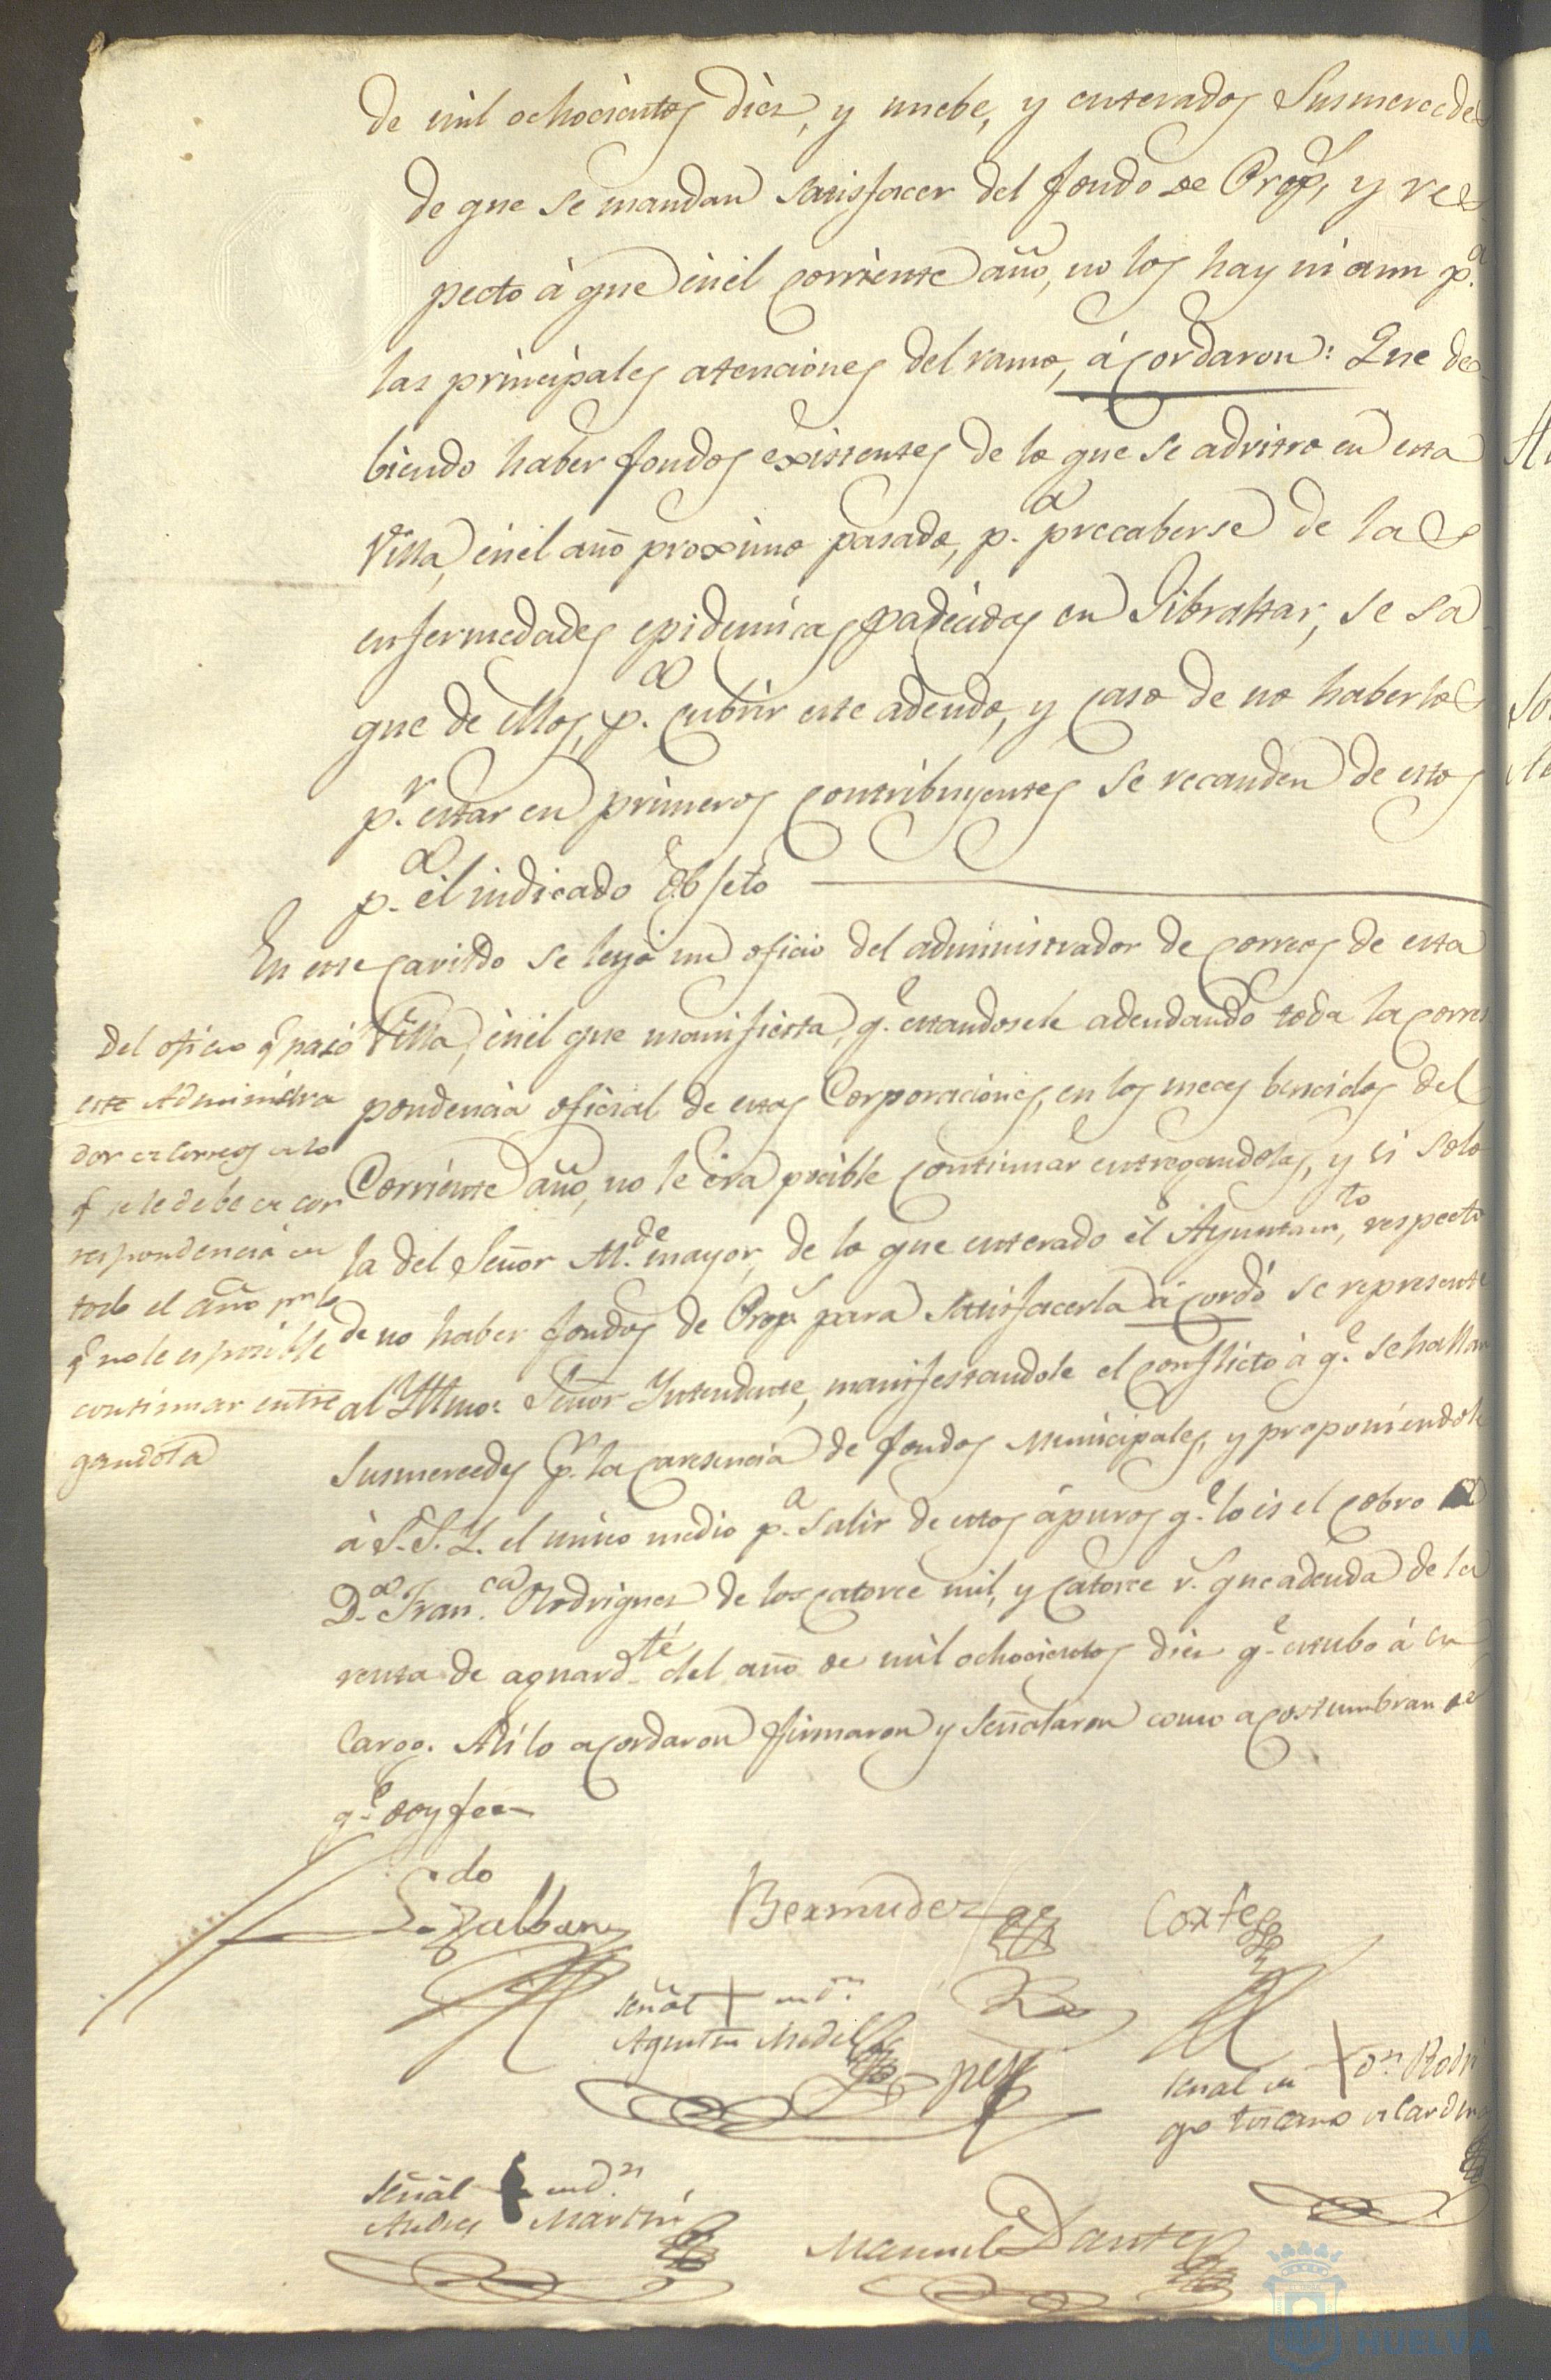 de mil ochocientos diez, y nuebe, y enterados Susmercedes
de que se mandan satisfacer del fondo de Prop.s, y res
pecto à que en el corriente año, no los hay ni aun p.a
las principales atenciones del ramo, acordaron: Que de
biendo haber fondos existentes de lo que se advitro en esta
Villa, en el año proximo pasado, p.a precaberse de las
enfermedades epidemicas padecidas en Gibraltar, se sa
que de ellos, p.a cubrir este adeudo, y caso de no haberlos
p.r estar en primeros contribuyentes se recauden de estos
p.a el indicado Obgeto
En este cavildo se leyó un oficio del administrador de correos de esta
Villa, en el que manifiesta, q.e estandosele adeudando toda la corres
pondencia oficial de estas Corporaciones, en los meces bencidos del
Corriente año, no le era pocible continuar entregandolas, y si solo
la del Señor Al.de mayor, de lo que enterado el Ayuntam.to, respecto
de no haber fondos de Prop.s para satisfacerla acordó se represente
al Yltmo. Señor Yntendente, manifestandole el conflicto à q.e se hallan
Susmercedes p.r la caresencia de fondos Municipales, y proponiendole
à S.S.Y. el unico medio p.a salir de estos apuros q.e lo es el cobro
D.a Fran.ca Rodriguez de los catorce mil, y catorce r.s que adeuda de la
renta de aguard.te del año de mil ochocientos diez q.e estubo à su
Cargo. Asi lo acordaron firmaron y señalaron como acostumbran de
q.e doy fee
del oficio q.e pasó
este Administra
dor de correos de lo
q.e se le debe de cor
respondencia en
todo el año p.r lo
q.e no le es posible
continuar entre
gandola
L.do
Zalban
Bermudez
Cortes
señal + de D.n
Agustin Medel
señal de + D.n Rodri
go Toscano de Cardenas
señal + de D.n
Andres Martin
Manuel Dantes
HUELVA